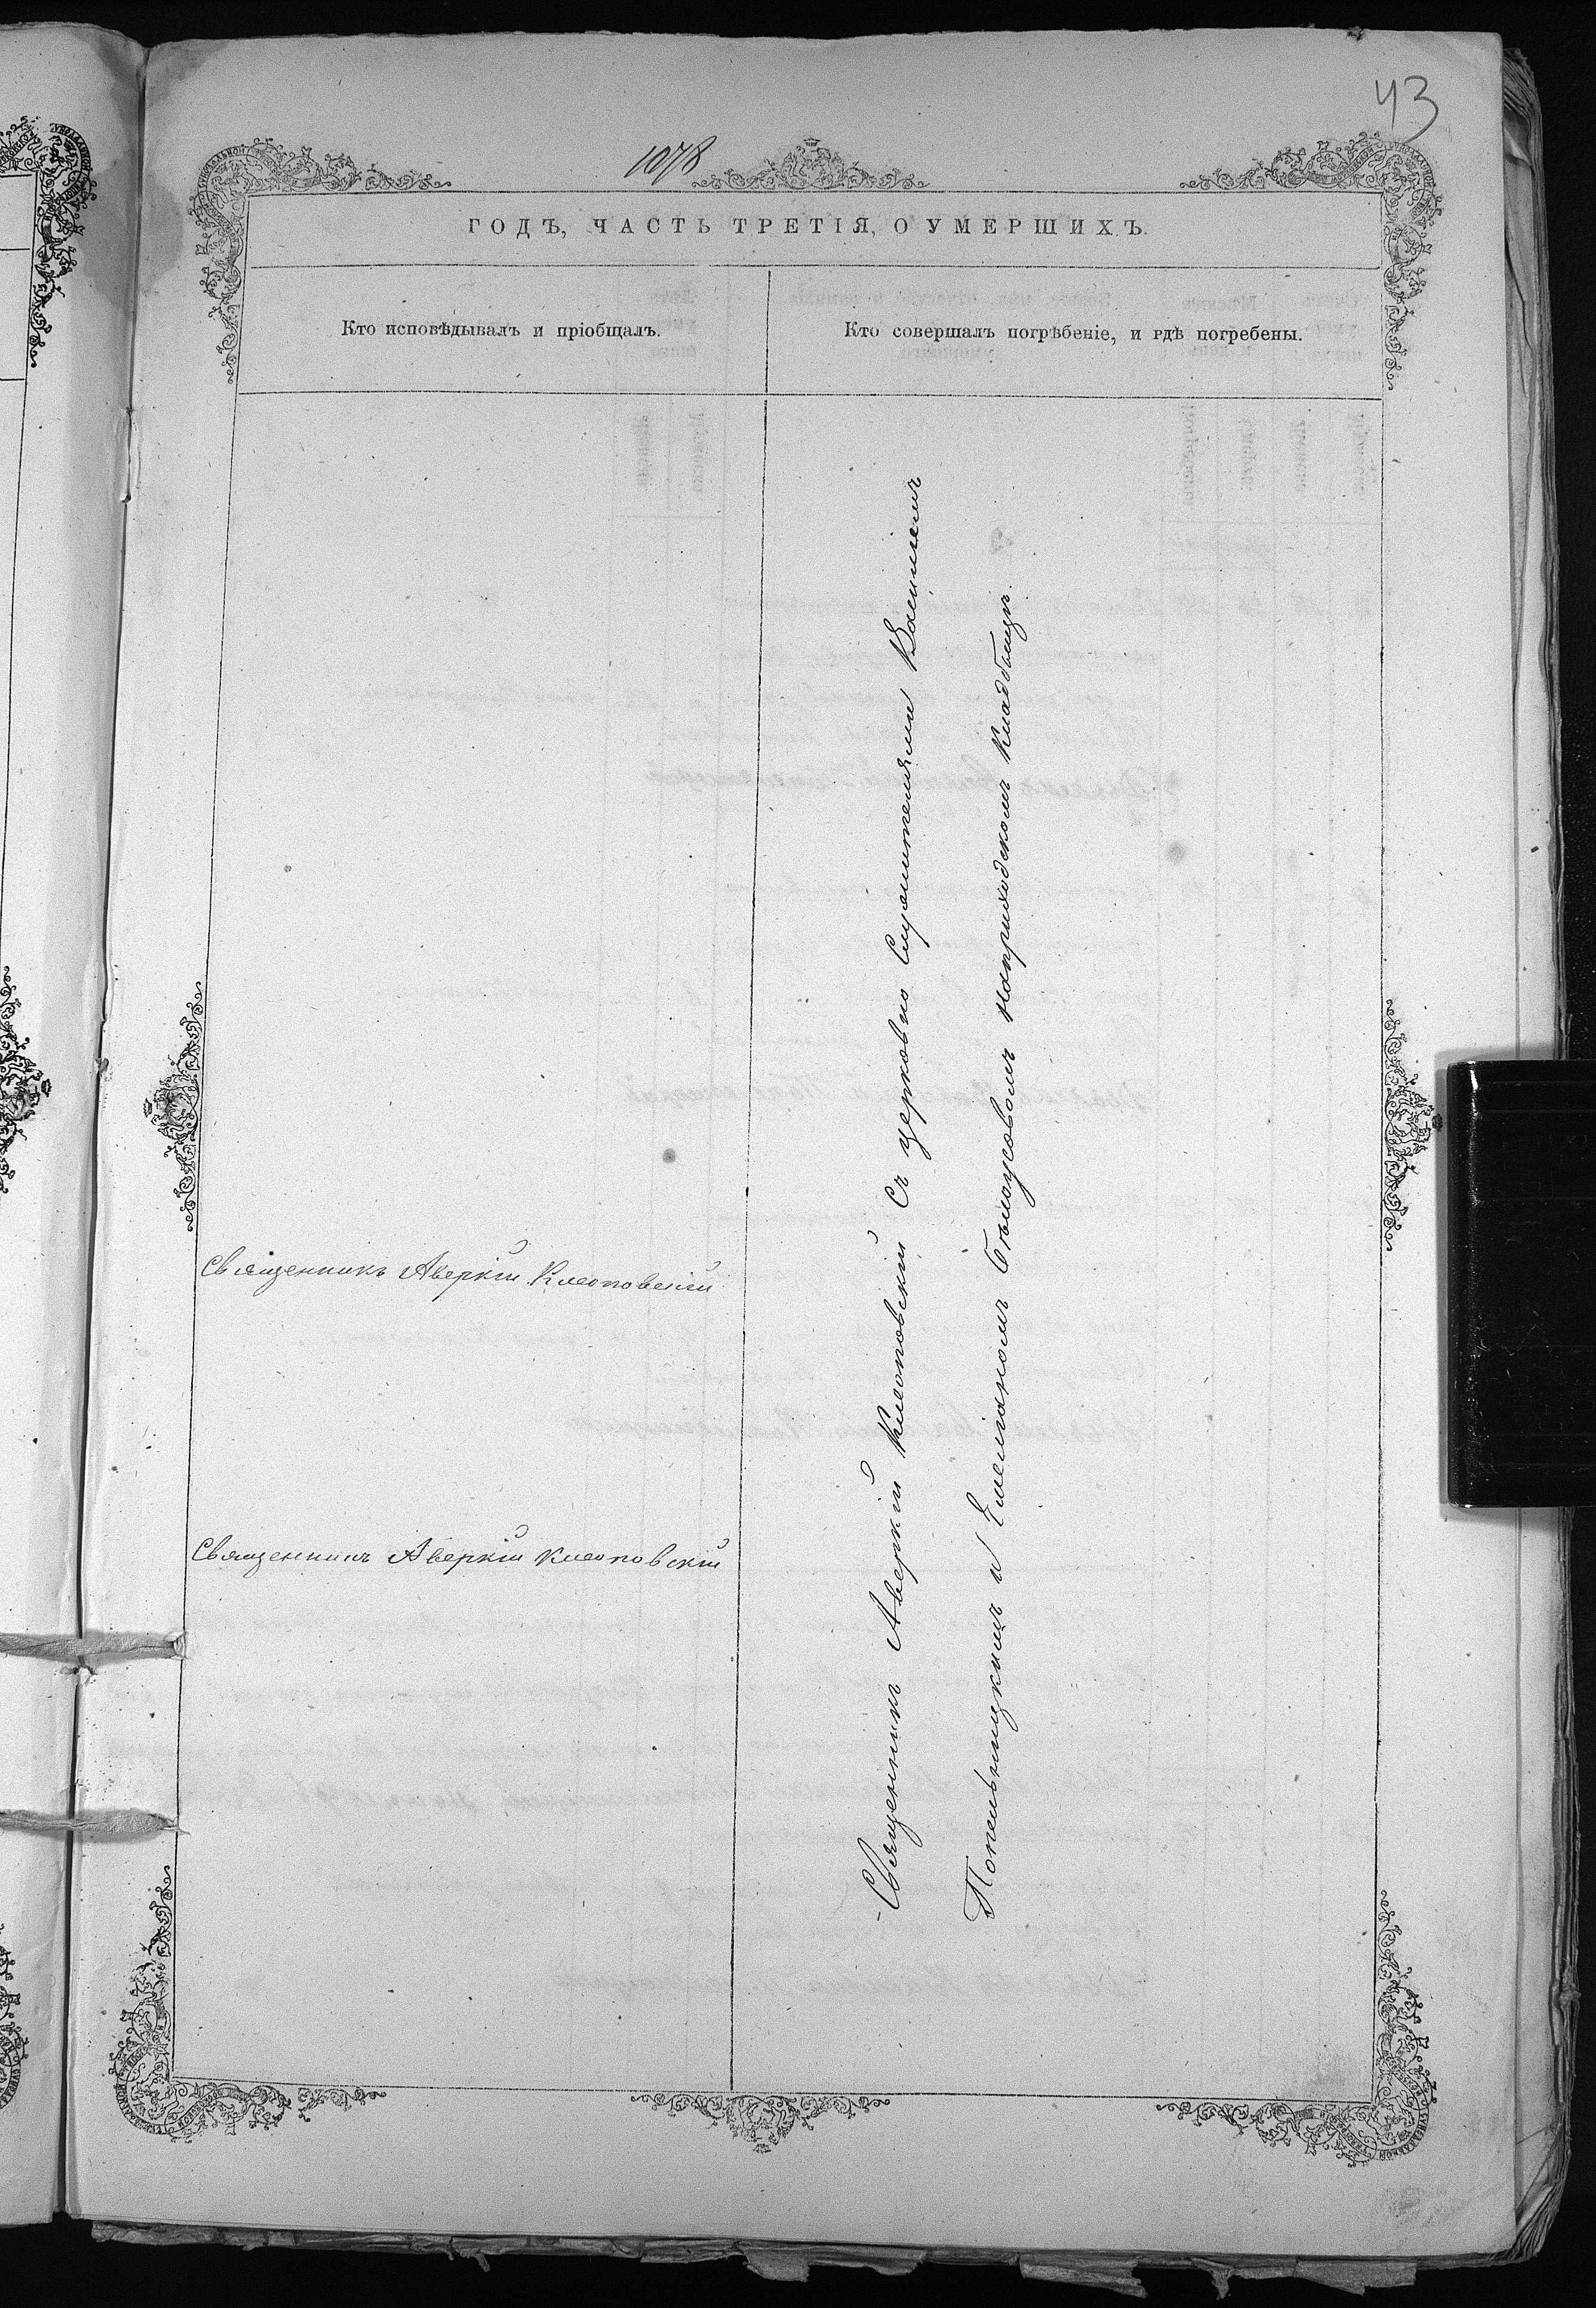 43
1078
ГОДЪ, ЧАСТЬ ТРЕТІЯ, О УМЕРШИХЪ.
Кто исповѣдывалъ и пріобщалъ.
Кто совершалъ погрѣбеніе, и гдѣ погребены.
Священникъ Аверкій Клеоповскій
Священникъ Аверкій Клеоповскій
Священникъ Аверкій Клеоповскій Съ церковно Служителями Василіемъ
Попельницкимъ и Емеліаномъ Бѣлоусовомъ наприходскомъ кладбищѣ.